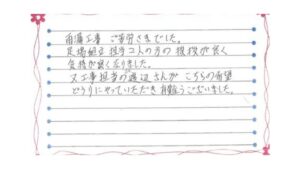 雨漏工事 ご苦労さまでした。
足場組立担当2人の方の挨拶が良く
気持が良くなりました。
又工事担当の渡辺さんが こちらの希望
どうりにやっていただき有難うございました。